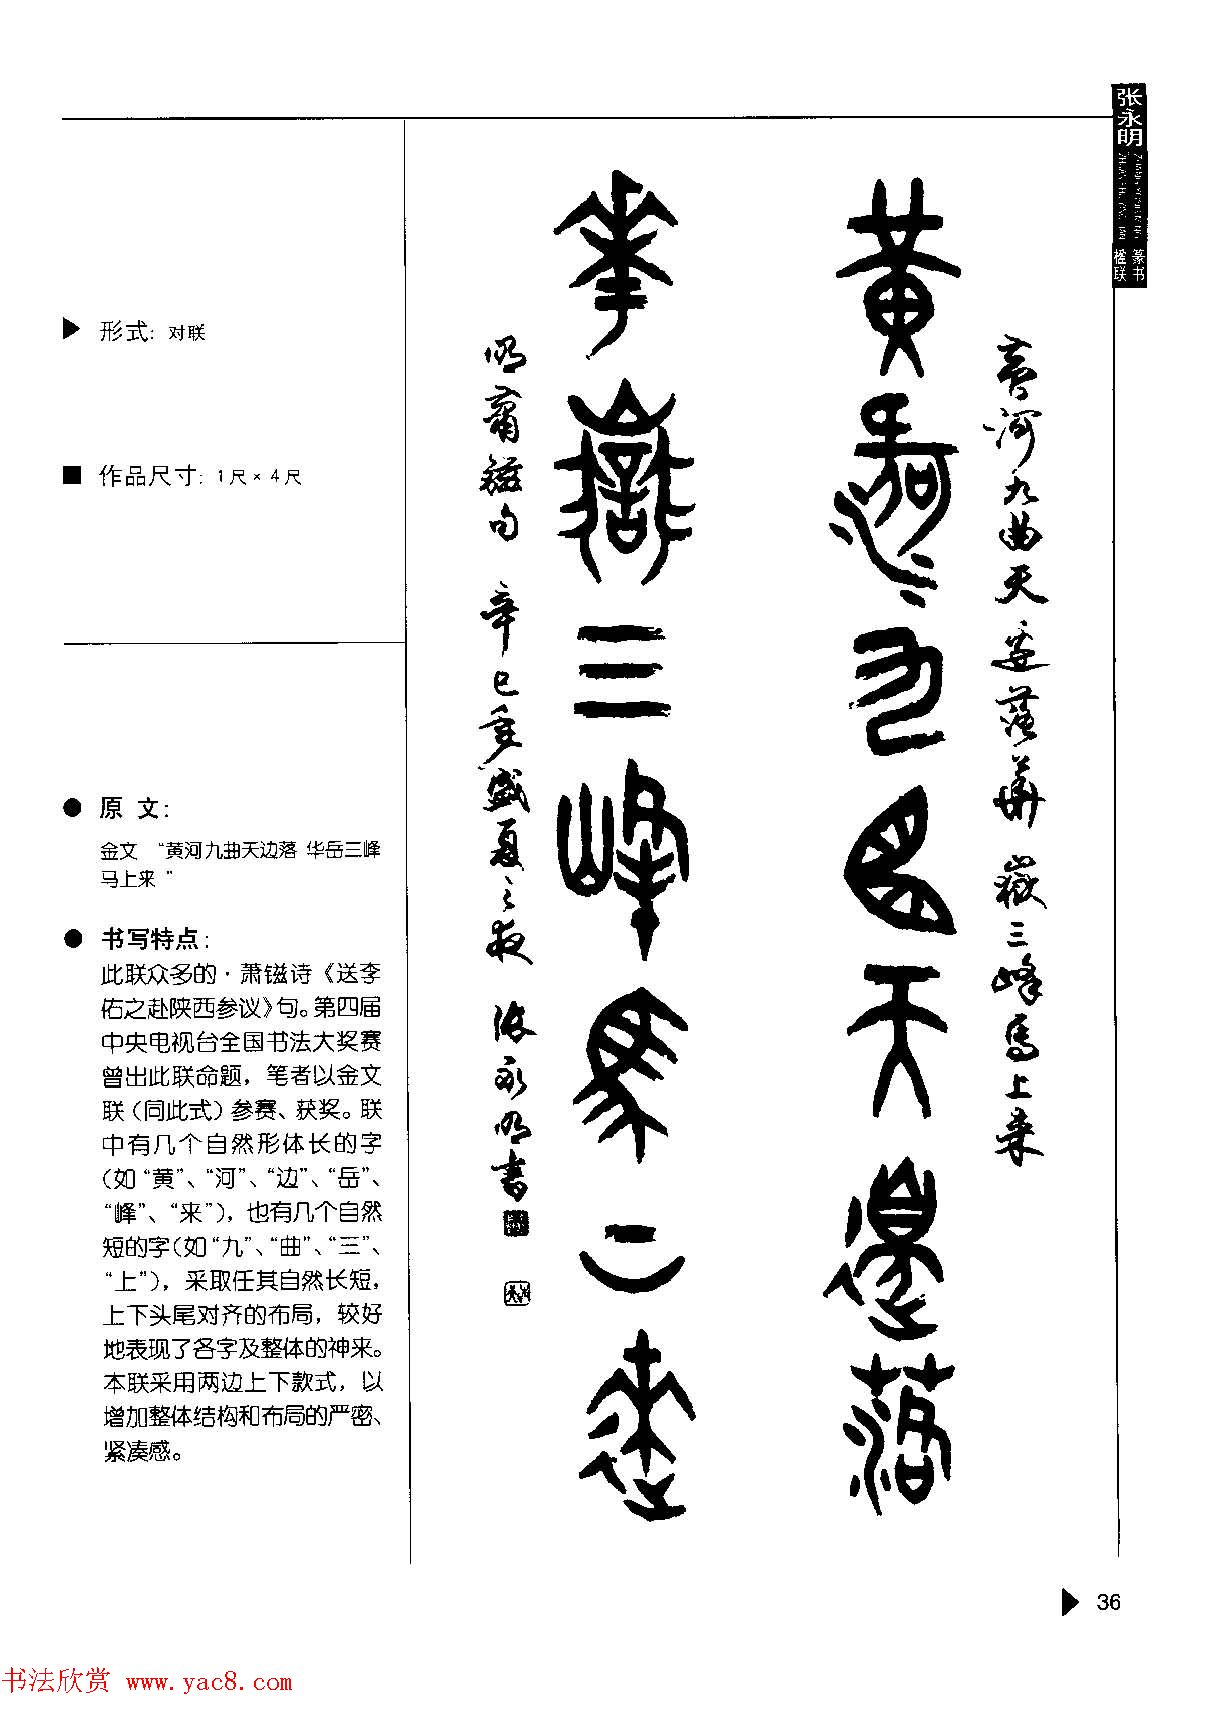 张永明
篆书
楹联
形式：对联
作品尺寸：1尺×4尺
原 文：
金文 “黄河九曲天边落 华岳三峰
马上来 ”
书写特点：
此联众多的·萧镃诗《送李
佑之赴陕西参议》句。第四届
中央电视台全国书法大奖赛
曾出此联命题，笔者以金文
联（同此式）参赛、获奖。联
中有几个自然形体长的字
（如“黄”、“河”、“边”、“岳”、
“峰”、“来”），也有几个自然
短的字（如“九”、“曲”、“三”、
“上”），采取任其自然长短，
上下头尾对齐的布局，较好
地表现了各字及整体的神来。
本联采用两边上下款式，以
增加整体结构和布局的严密、
紧凑感。
黄河九曲天边落华嶽三峰馬上来
黄河九曲天邊落
華嶽三峰馬上來
明萧镃句 辛巳年盛夏之夜 张永明书
36
书法欣赏 www.yac8.com